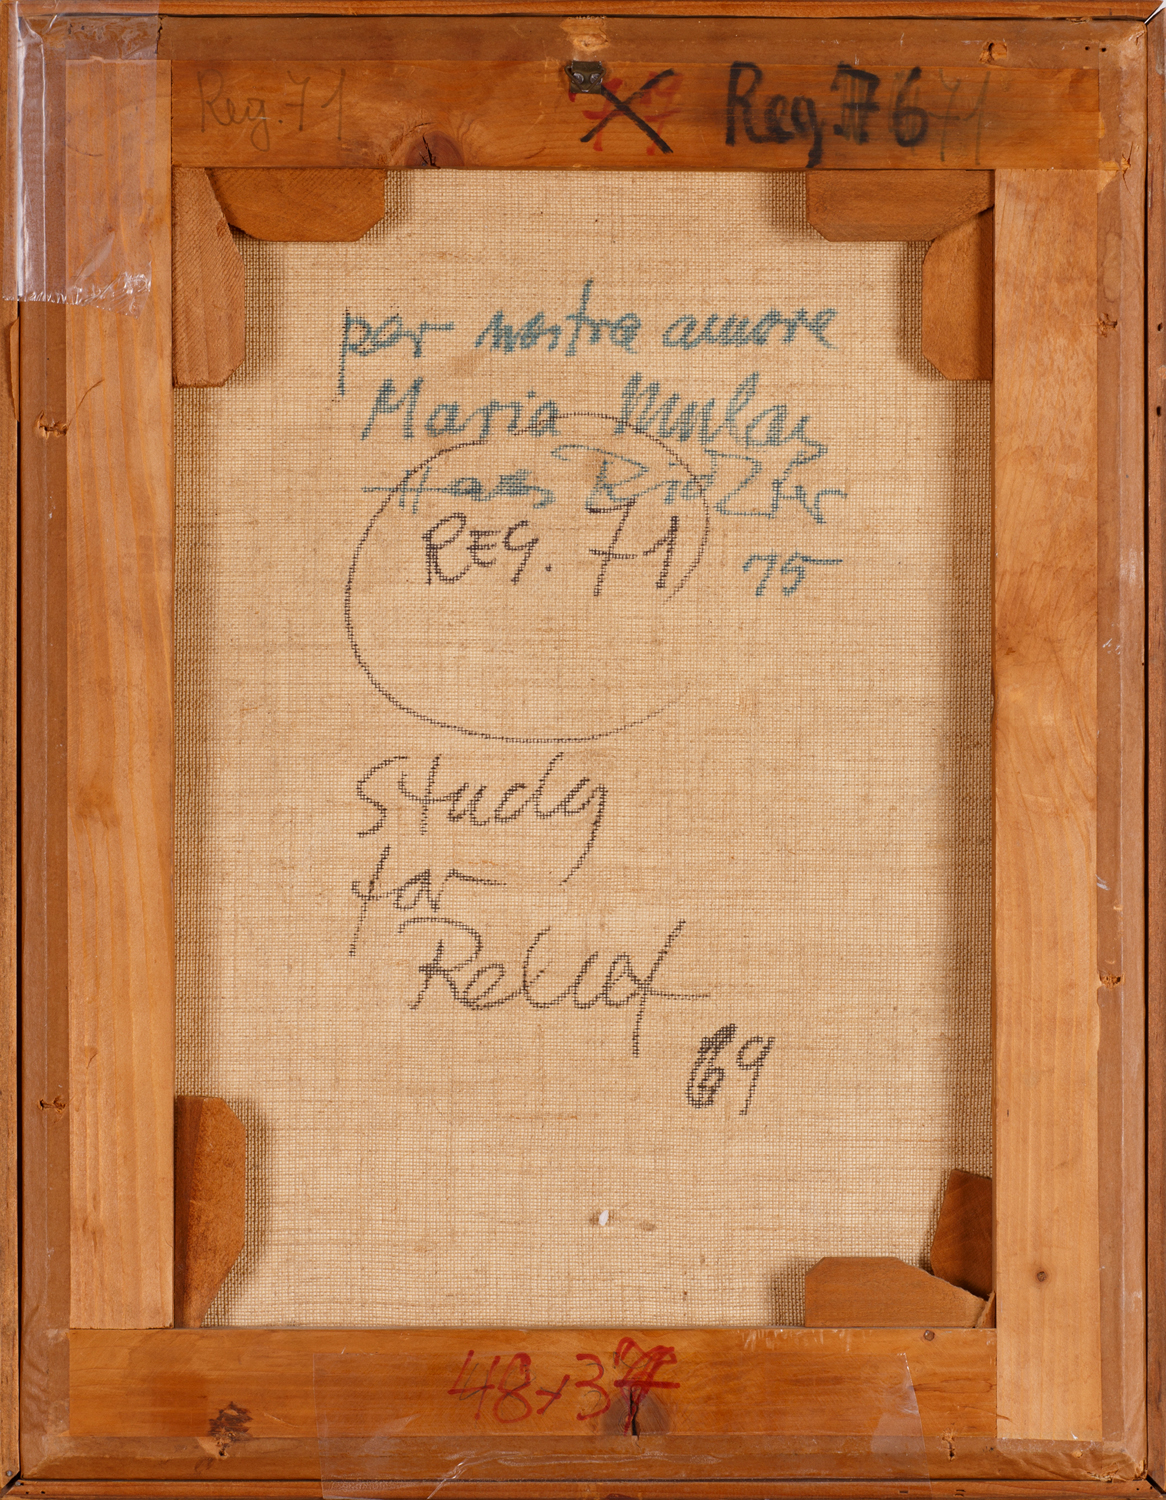 Reg. 71
Reg. 76 71
per nostra amore
Maria
Hans
REG. 71
75
Study
for
Relief
69
48x37